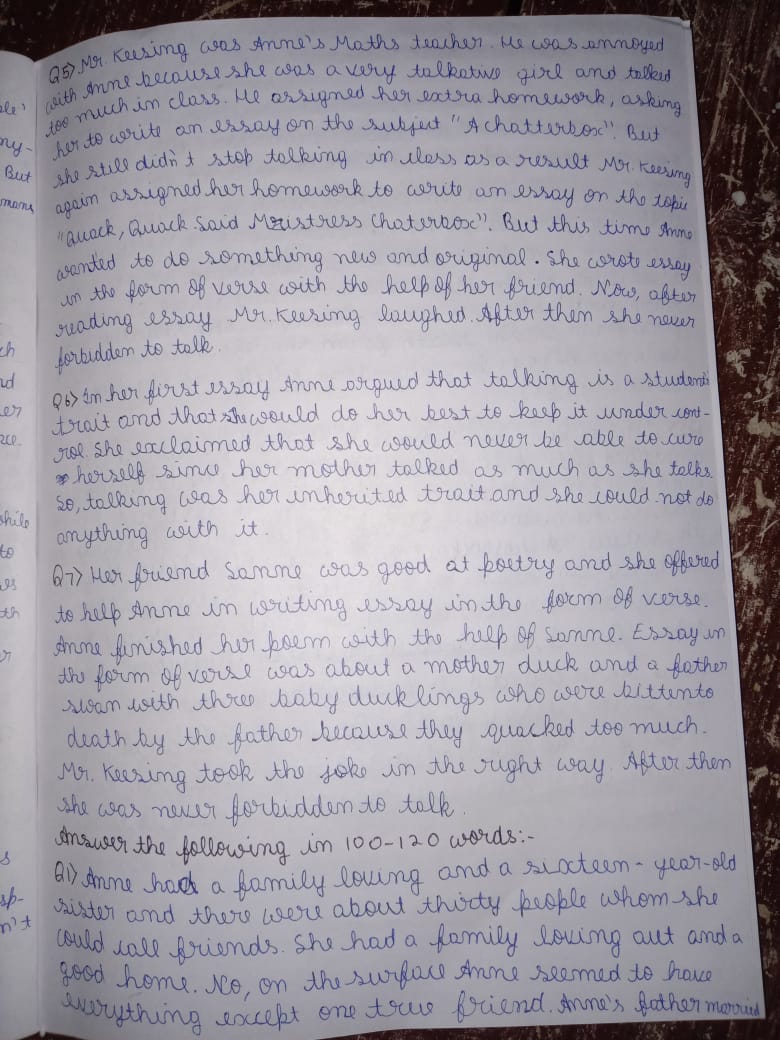 Q5) Mr. Keesing was Anne's Maths teacher. He was annoyed
with Anne because she was a very talkative girl and talked
too much in class. He assigned her extra homework, asking
her to write an essay on the subject "A chatterbox". But
she still didn't stop talking in class as a result Mr. Keesing
again assigned her homework to write an essay on the topic
"Quack, Quack Said Mistress Chaterbox". But this time Anne
wanted to do something new and original. She wrote essay
in the form of verse with the help of her friend. Now, after
reading essay Mr. Keesing laughed. After then she never
forbidden to talk.
Q6) In her first essay Anne argued that talking is a student's
trait and that she would do her best to keep it under cont-
rol. She exclaimed that she would never be able to cure
herself since her mother talked as much as she talks.
So, talking was her inherited trait and she could not do
anything with it.
Q7) Her friend Sanne was good at poetry and she offered
to help Anne in writing essay in the form of verse.
Anne finished her poem with the help of Sanne. Essay in
the form of verse was about a mother duck and a father
swan with three baby ducklings who were bitten to
death by the father because they quacked too much.
Mr. Keesing took the joke in the right way. After then
she was never forbidden to talk.
Answer the following in 100-120 words:-
Q1) Anne had a family loving and a sixteen-year-old
sister and there were about thirty people whom she
could call friends. She had a family loving aut and a
good home. No, on the surface Anne seemed to have
everything except one true friend. Anne's father married
ple'
ny-
But
mans
ch
nd
er
nce.
while
to
es
th
er
s
sp-
n't